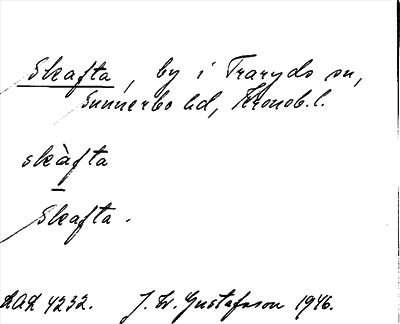 Skafta, by i Traryds sn,
Sunnerbo hd, Kronob.l.
skàfta
Skafta.
LAL 4232. J. W. Gustafsson 1946.